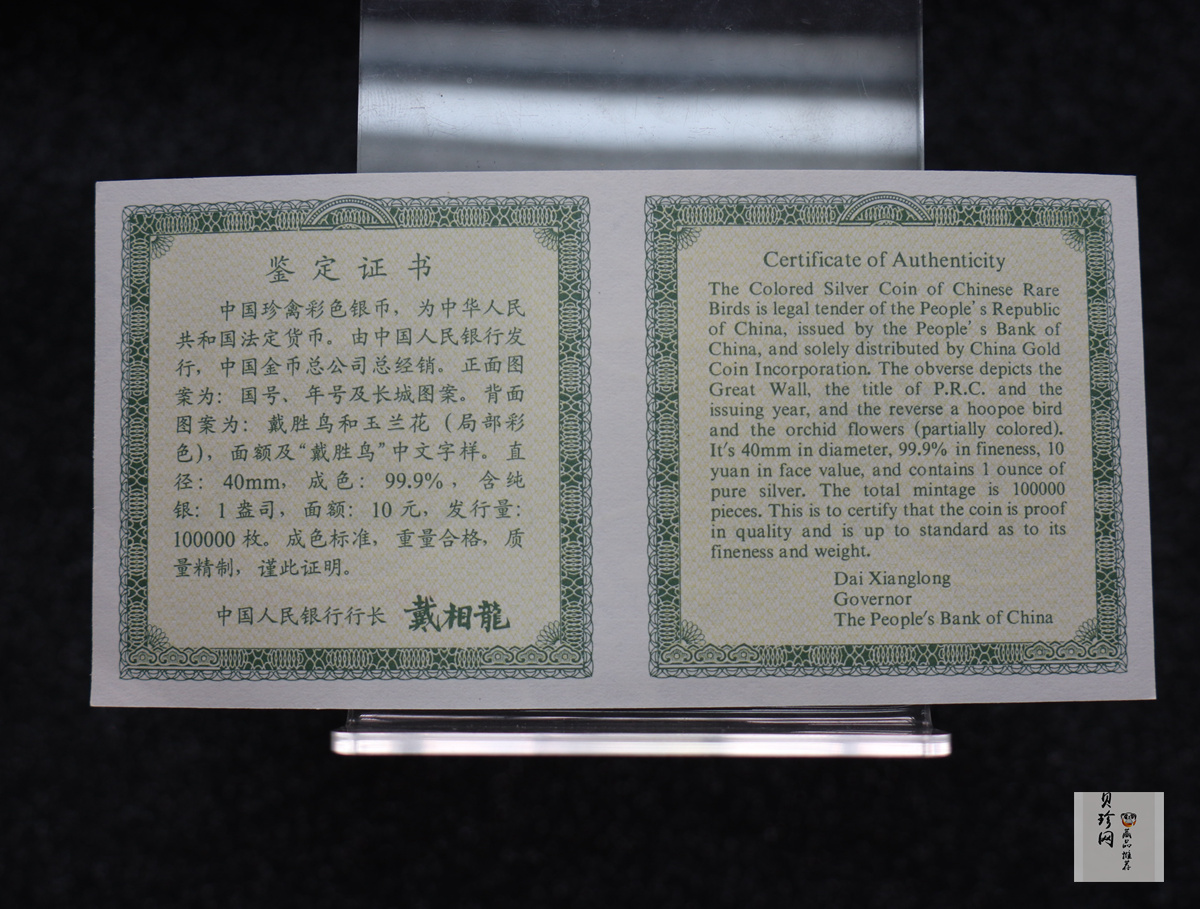 鉴定证书
中国珍禽彩色银币，为中华人民
共和国法定货币。由中国人民银行发
行，中国金币总公司总经销。正面图
案为：国号、年号及长城图案。背面
图案为：戴胜鸟和玉兰花（局部彩
色），面额及“戴胜鸟”中文字样。直
径：40mm，成色：99.9%，含纯
银：1盎司，面额：10元，发行量：
100000枚。成色标准，重量合格，质
量精制，谨此证明。
中国人民银行行长 戴相龍
Certificate of Authenticity
The Colored Silver Coin of Chinese Rare
Birds is legal tender of the People's Republic
of China, issued by the People's Bank of
China, and solely distributed by China Gold
Coin Incorporation. The obverse depicts the
Great Wall, the title of P.R.C. and the
issuing year, and the reverse a hoopoe bird
and the orchid flowers (partially colored).
It's 40mm in diameter, 99.9% in fineness, 10
yuan in face value, and contains 1 ounce of
pure silver. The total mintage is 100000
pieces. This is to certify that the coin is proof
in quality and is up to standard as to its
fineness and weight.
Dai Xianglong
Governor
The People's Bank of China
贝珍网
藏品推荐